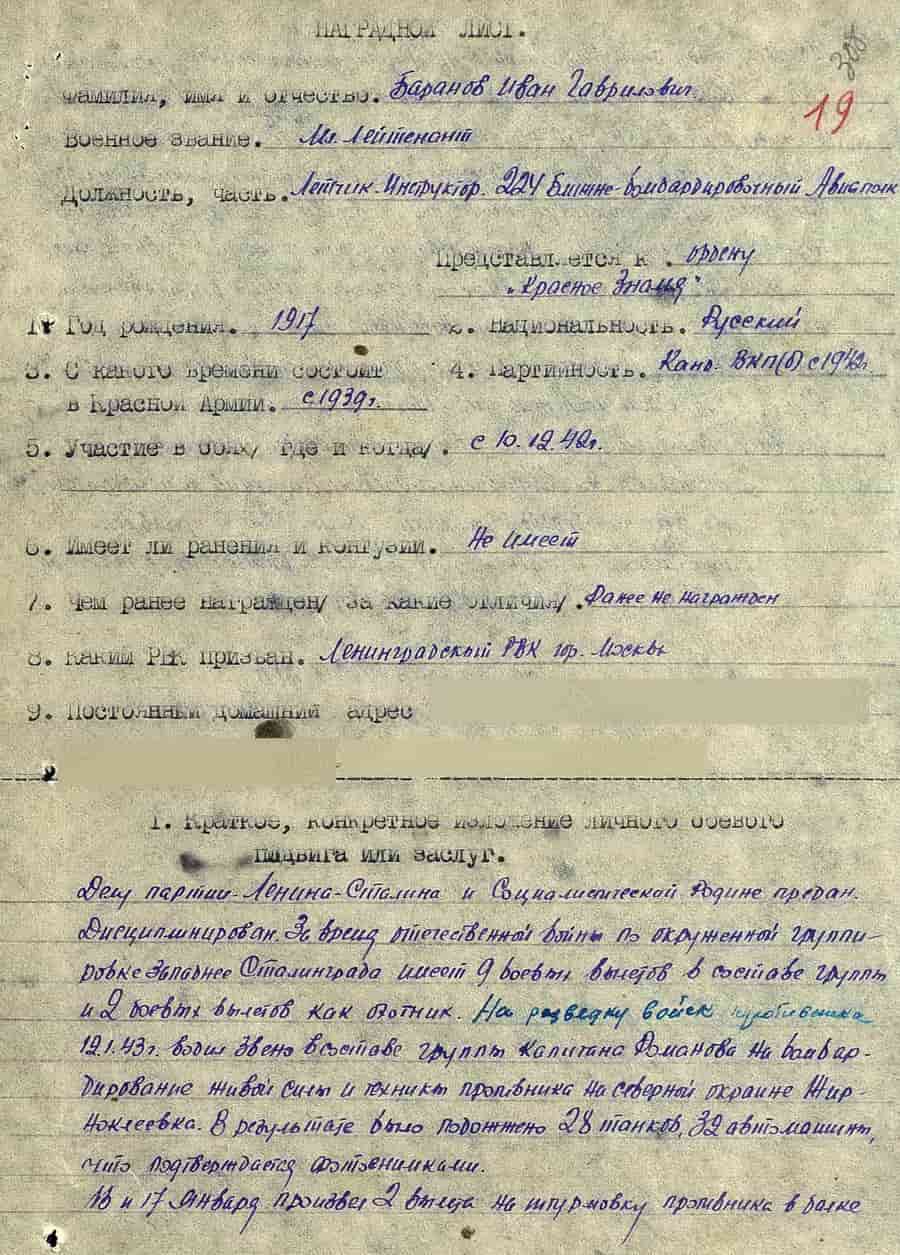 НАГРАДНОЙ ЛИСТ.
308
19
Фамилия, имя и отчество. Баранов Иван Гаврилович.
Военное звание. Мл. Лейтенант
Должность, часть. Летчик-Инструктор. 224 Ближне-бомбардировочный Авиаполк
Представляется к . ордену
"Красное Знамя"
1. Год рождения. 1917 2. Национальность. Русский
3. С какого времени состоит 4. Партийность. Канд. ВКП(б) с 1942г.
в Красной Армии. с 1939г.
5. Участие в боях/ где и когда/. с 10.12.42г.
6. Имеет ли ранения и контузии. Не имеет
7. Чем ранее награжден/ за какие отличия/. Ранее не награжден
8. Каким РВК призван. Ленинградский РВК гор. Москвы
9. Постоянный домашний адрес
1. Краткое, конкретное изложение личного боевого
подвига или заслуг.
Делу партии-Ленина-Сталина и Социалистической Родине предан.
Дисциплинирован. За время отечественной войны по окруженной группи-
ровке Западнее Сталинграда имеет 9 боевых вылетов в составе группы
и 2 боевых вылетов как охотник. На разведку войск противника
12.1.43г. водил звено в составе группы Капитана Романова на бомбар-
дирование живой силы и техники противника на северной окраине Жир-
ноклеевка. В результате было подожжено 28 танков, 32 автомашины,
что подтверждается фотоснимками.
и 17 Января произвел 2 вылета на штурмовку противника в балке